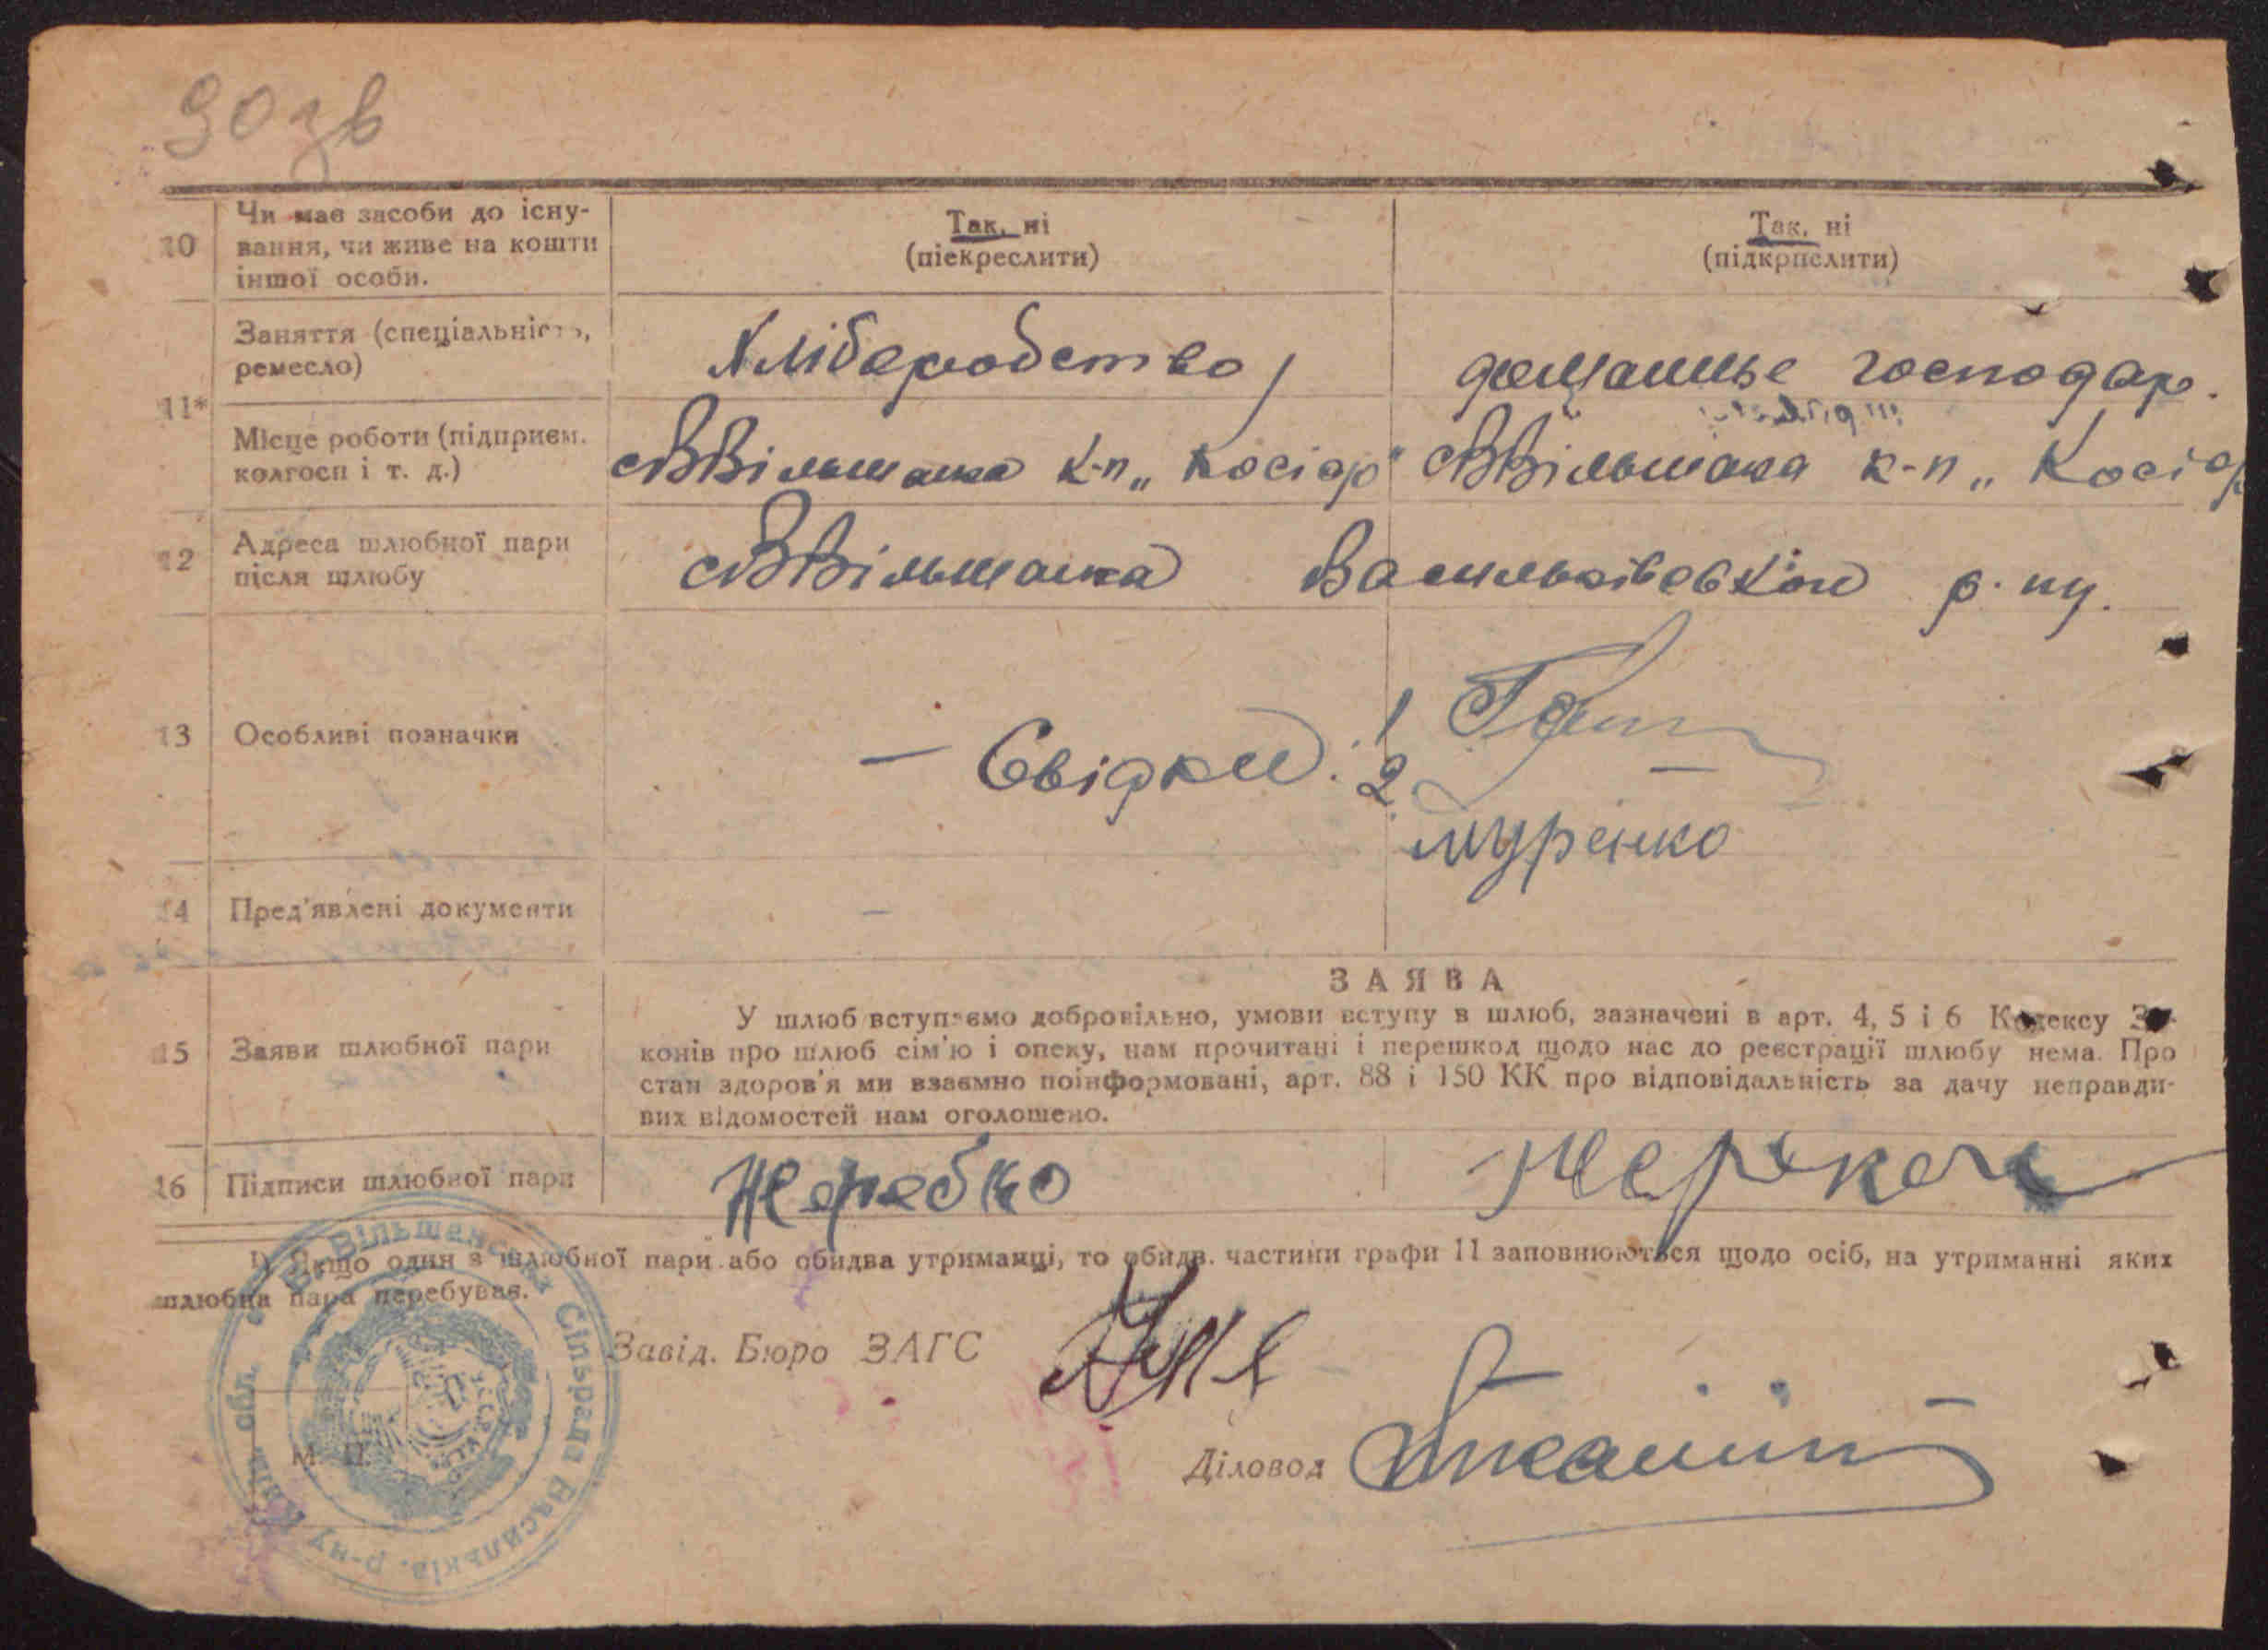 90 зв
10
Чи має засоби до існу-
вання, чи живе на кошти
іншої особи.
Так, ні
(піекреслити)
Так, ні
(підкрпслити)
11*
Заняття (спеціальність,
ремесло)
Хліборобство
домашнье господар.
Місце роботи (підприєм.
колгосп і т. д.)
с В Вільшанка к-п „ Косіор"
с В Вільшанка к-п „ Косіор
12
Адреса шлюбної пари
після шлюбу
с В Вільшанка Васильківський р. ну.
13
Особливі позначки
— Свідки: 1
2. Муренко
14
Пред'явлені документи
—
15
Заяви шлюбної пари
ЗАЯВА
У шлюб вступаємо добровільно, умови вступу в шлюб, зазначені в арт. 4, 5 і 6 Кодексу За-
конів про шлюб сім'ю і опеку, нам прочитані і перешкод щодо нас до реєстрації шлюбу нема. Про
стан здоров'я ми взаємно поінформовані, арт. 88 і 150 КК про відповідальність за дачу неправди-
вих відомостей нам оголошено.
16
Підписи шлюбної пари
Жеребко
1) Якщо один з шлюбної пари або обидва утриманці, то обидв. частини графи 11 заповнюються щодо осіб, на утриманні яких
шлюбна пара перебуває.
Завід. Бюро ЗАГС
Діловод
М. П.
В. Вільшанська Сільрада Васильків. р-ну Київ. обл.